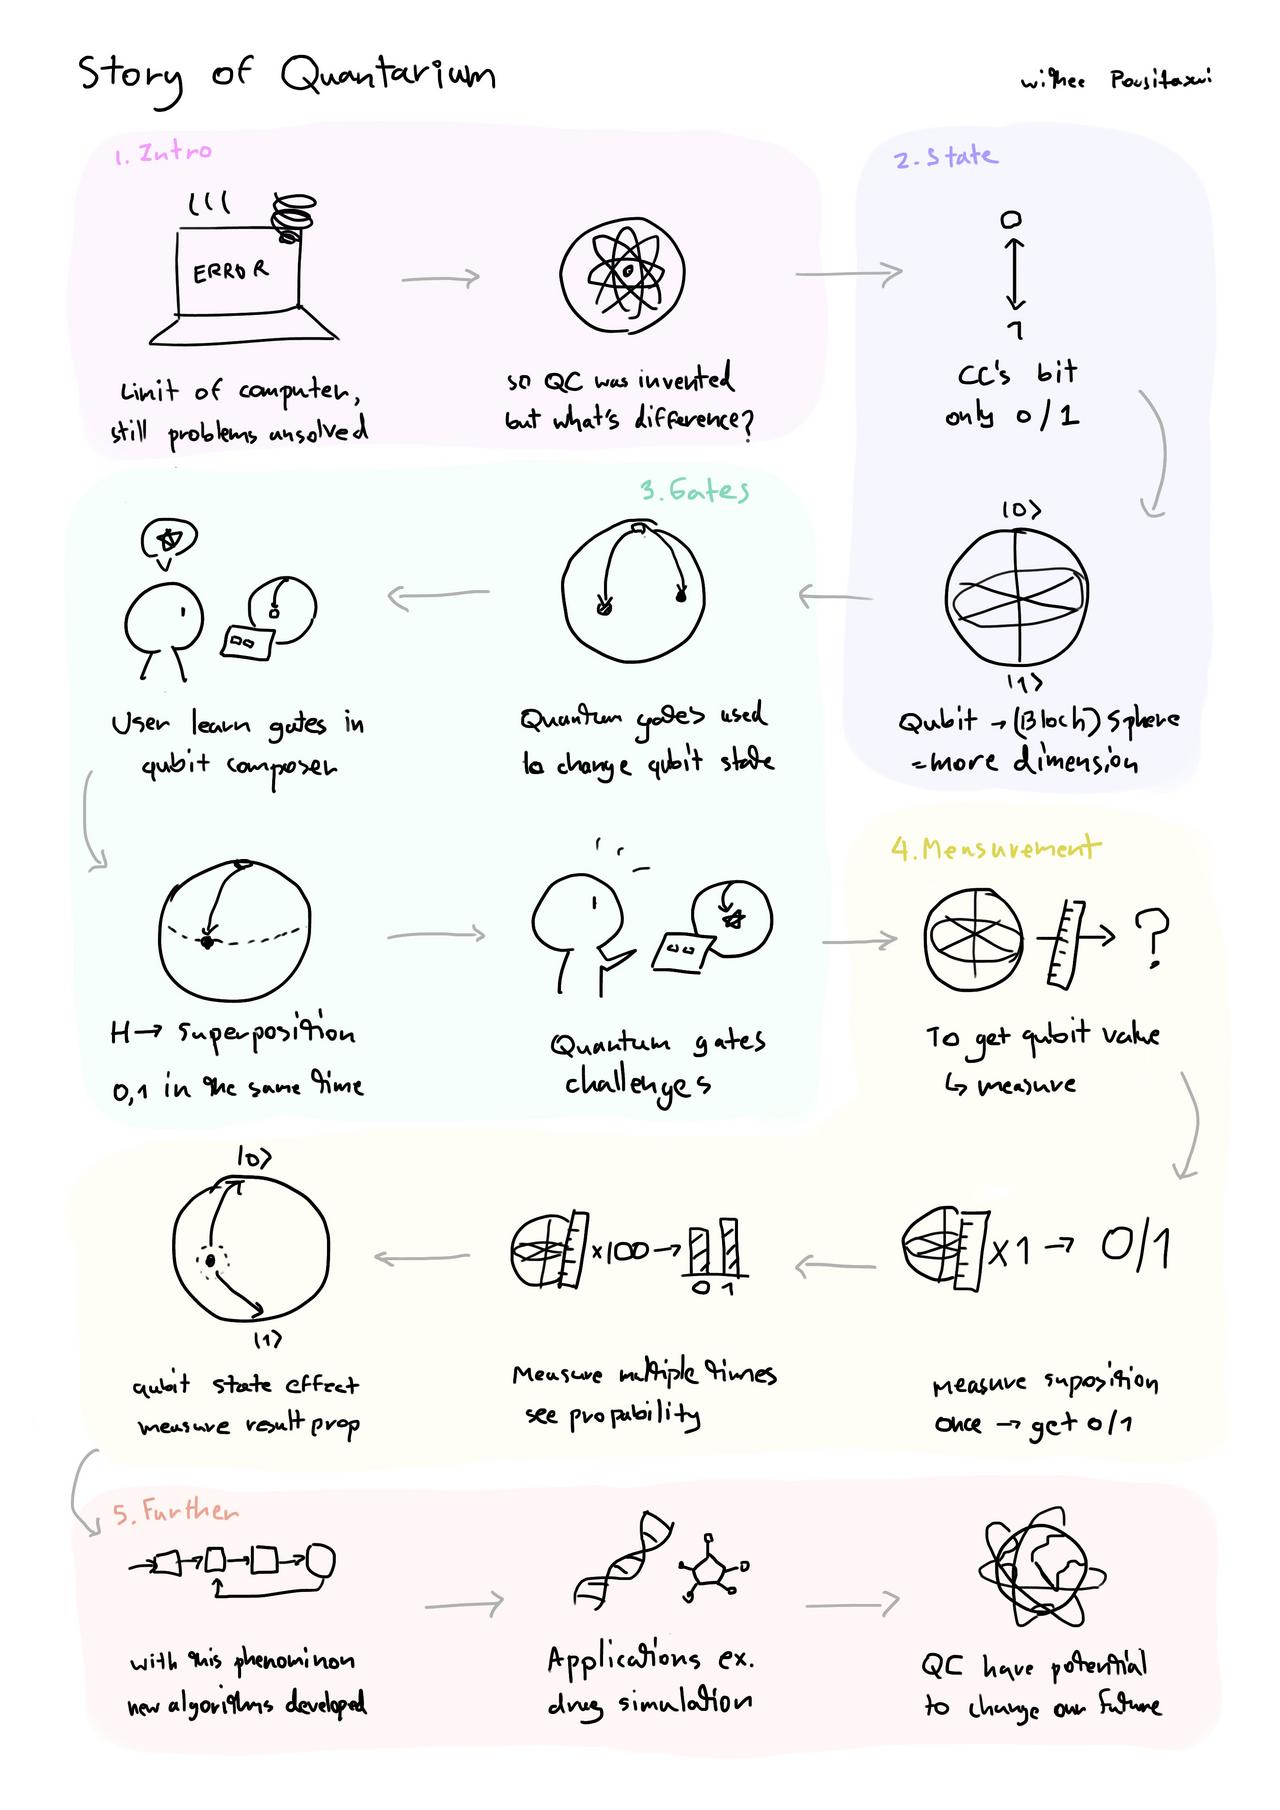 Story of Quantarium
withee
1. Intro
ERROR
Limit of computer,
still problems unsolved
so QC was invented
but what's difference?
2. State
0
1
CC's bit
only 0/1
|0>
|1>
Qubit → (Bloch) Sphere
= more dimension
3. Gates
Quantum gates used
to change qubit state
User learn gates in
qubit composer
H → Superposition
0,1 in the same time
Quantum gates
challenges
4. Measurement
?
To get qubit value
↳ measure
x1 → 0/1
Measure suposition
once → get 0/1
x100 →
0 1
Measure multiple times
see propability
|0>
|1>
qubit state effect
measure result prop
5. Further
with this phenominon
new algorithms developed
Applications ex.
drug simulation
QC have potential
to change our future